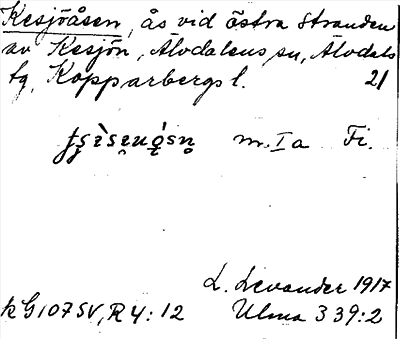 Kesjöåsen, ås vid östra stranden
av Kesjön, Älvdalens sn, Älvdals
tg, Kopparbergs l. 21
m. Ia Fi.
L. Levander 1917
k G107SV, R 4:12 Ulma 339:2